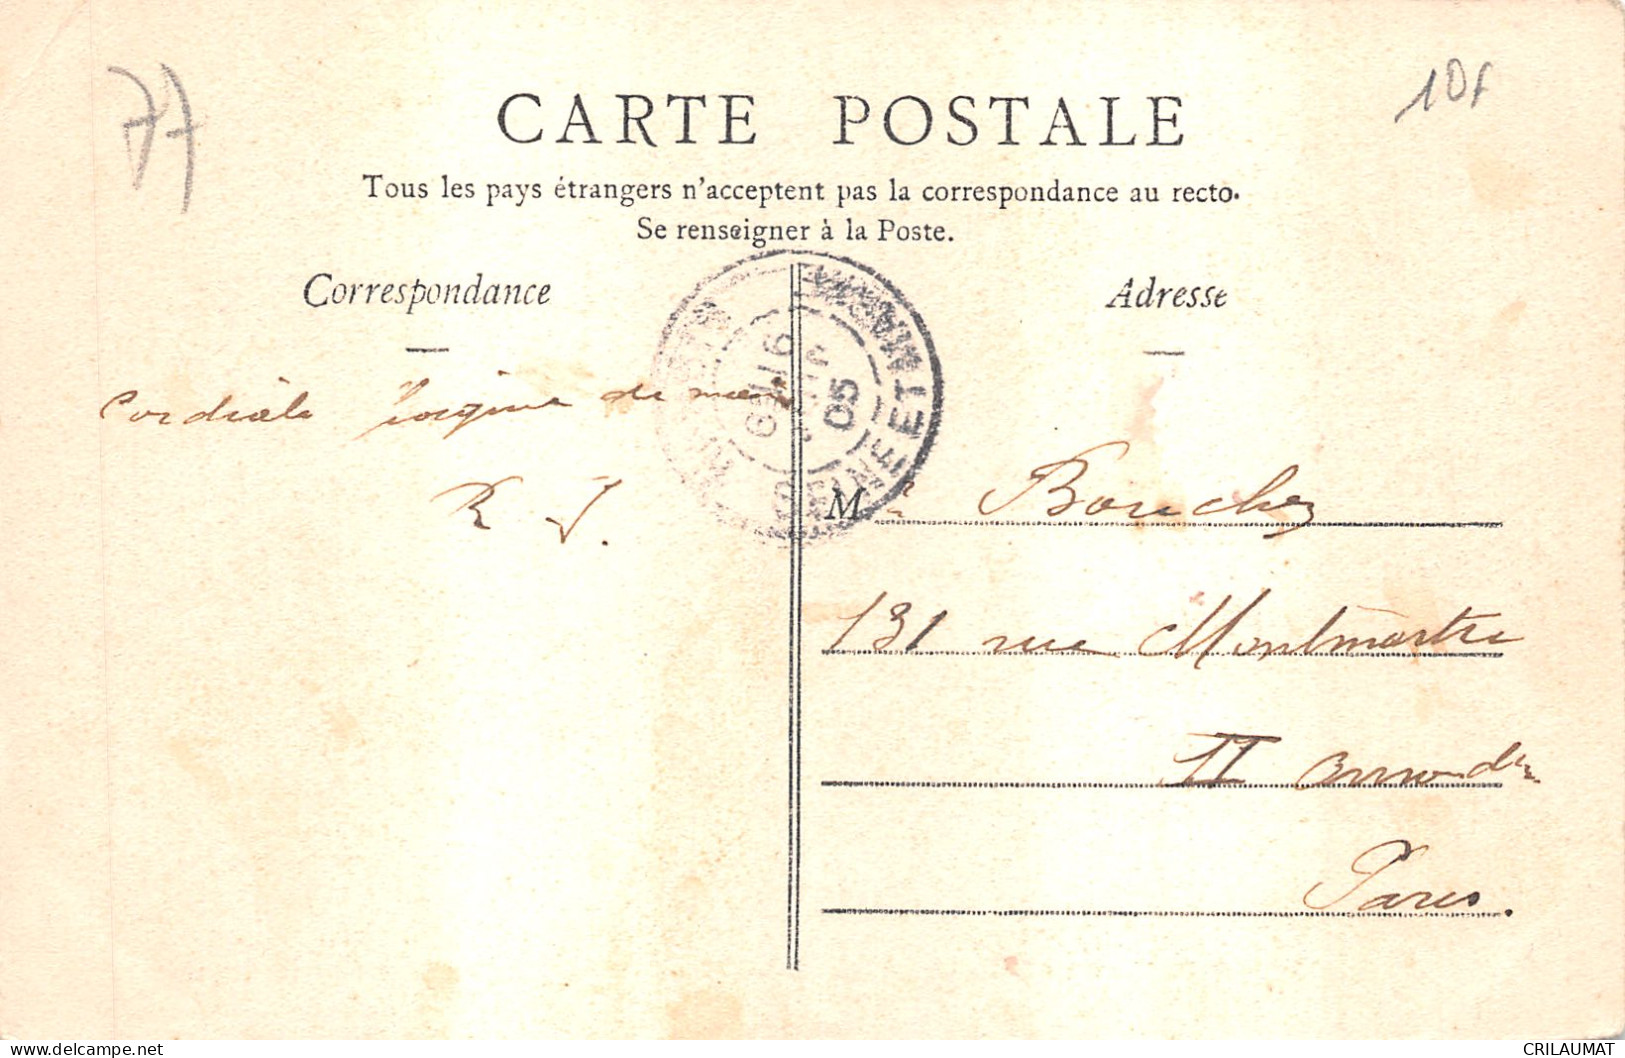 77
10f
CARTE POSTALE
Tous les pays étrangers n'acceptent pas la correspondance au recto.
Se renseigner à la Poste.
Correspondance
Adresse
SEINE ET MARNE
05
Cordiale
R J.
Mr Bouchez
131 rue Montmartre
II arrondt
Paris.
www.delcampe.net
CRILAUMAT